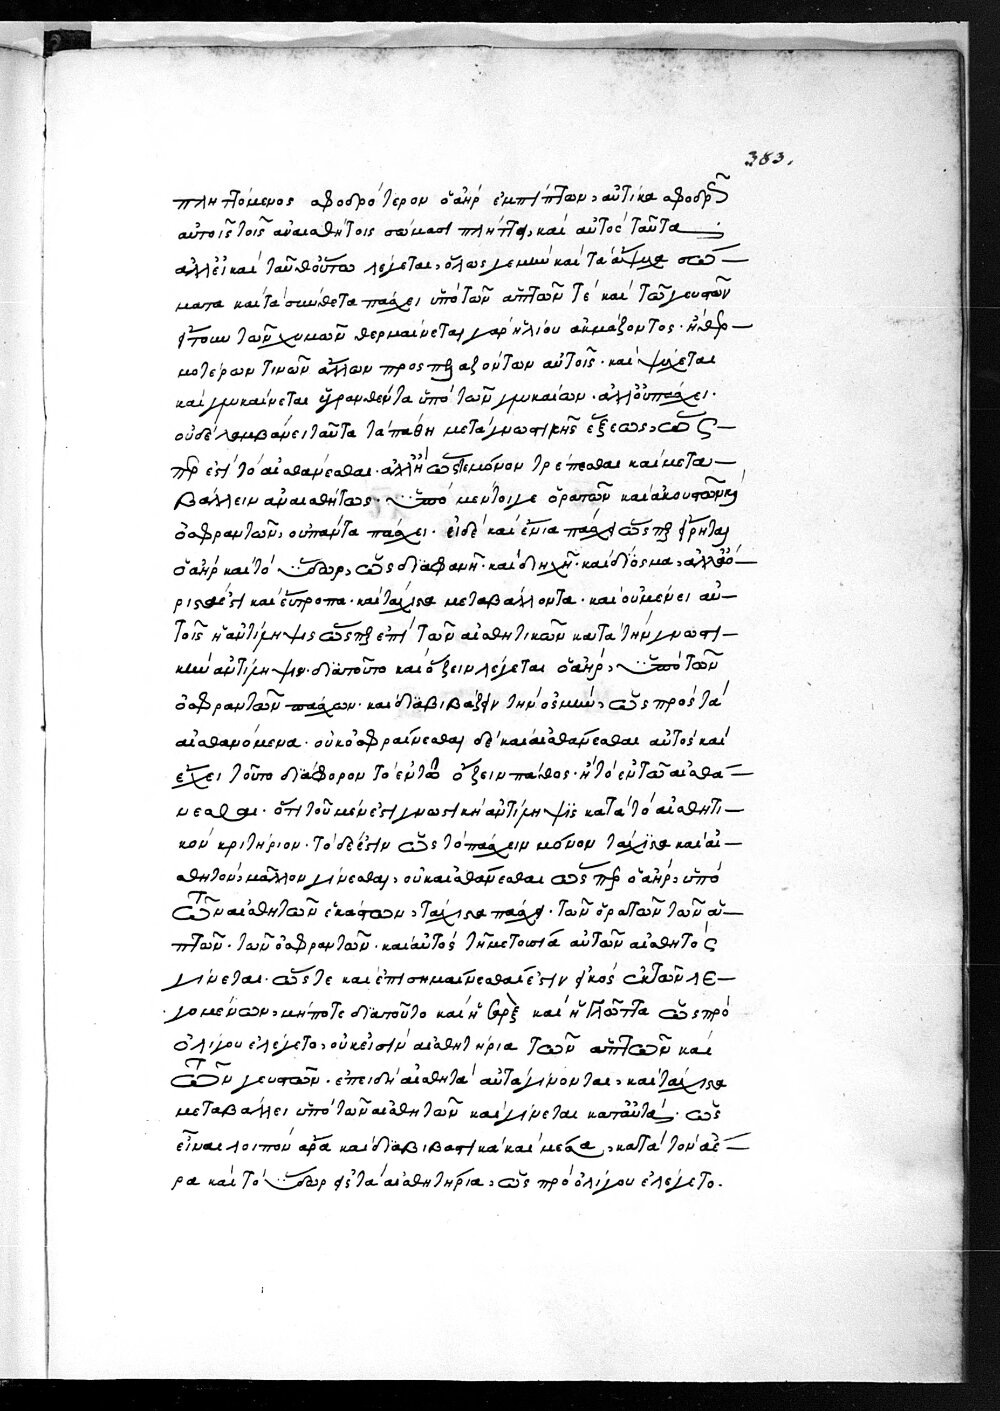 383.
πληττόμενος σφοδρότερον ὁ ἀὴρ ἐμπίπτων, αὐτίκα σφοδρῶς
αὐτοῖς τοῖς ἀναισθήτοις σώμασι πλήττει, καὶ αὐτὸς ταῦτα
ἀλλ' εἰ καὶ ταῦθ' οὕτω λέγεται, ὅλως γε μὴν καὶ τὰ ἄψυχα σώ–
ματα καὶ τὰ σύνθετα πάσχει ὑπὸ τῶν ἁπτῶν τὲ καὶ τῶν γευστῶν
ἤτοι τῶν χυμῶν θερμαίνεται γὰρ ἡλίου ἀκμάζοντος· ἢ θερ–
μοτέρων τινῶν ἄλλων προσπελαζόντων αὐτοῖς· καὶ ψύχεται
καὶ γλυκαίνεται ὑγρανθέντα ὑπὸ τῶν γλυκαίων· ἀλλ' οὐ πάσχει·
οὐδὲ λαμβάνει ταῦτα τὰ πάθη μετὰ γνωστικῆς ἕξεως, ὥσ–
περ ἐστὶ τὸ αἰσθάνεσθαι· ἀλλ' ἢ ὥστε μόνον τρέπεσθαι καὶ μετα–
βάλλειν ἀναισθήτως· ὑπὸ μέντοιγε ὁρατῶν καὶ ἀκουστῶν καὶ
ὀσφραντῶν, οὐ πάντα πάσχει· εἰ δὲ καὶ ἔνια πάσχει ὥσπερ εἴρηται
ὁ ἀὴρ καὶ τὸ ὕδωρ, ὡς διαφανῆ· καὶ διηχῆ· καὶ δίοσμα, ἀλλ' ἀό–
ριστά ἐστι καὶ εὔτροπα· καὶ τάχιστα μεταβάλλοντα· καὶ οὐ μένει αὐ–
τοῖς ἡ ἀντίληψις ὥσπερ ἐπὶ τῶν αἰσθητικῶν κατὰ τὴν γνωστι–
κὴν ἀντίληψιν· διατοῦτο καὶ ὄζειν λέγεται ὁ ἀὴρ, ὑπὸ τῶν
ὀσφραντῶν πάσχων· καὶ διαβιβάζειν τὴν ὀσμὴν, ὡς πρὸς τὰ
αἰσθανόμενα· οὐκ ὀσφραίνεσθαι δὲ καὶ αἰσθάνεσθαι αὐτὸς καὶ
ἔχει τοῦτο διάφορον τὸ ἐν τῷ ὄζειν πάθος· ἢ τὸ ἐν τῷ αἰσθά–
νεσθαι· ὅτι τοῦ μέν ἐστι γνωστικὴ ἀντίληψις κατὰ τὸ αἰσθητι–
κὸν κριτήριον· τὸ δέ ἐστιν ὡς τὸ πάσχειν μόνον τάχιστα καὶ αἰ–
σθητὸν, μᾶλλον γίνεσθαι, οὐκ αἰσθάνεσθαι ὥσπερ ὁ ἀὴρ, ὑπὸ
τῶν αἰσθητῶν ἑκάστων, τάχιστα πάσχει· τῶν ὁρατῶν τῶν ἁ–
πτῶν· τῶν ὀσφραντῶν· καὶ αὐτὸς τῇ μετουσίᾳ αὐτῶν αἰσθητὸς
γίνεται· ὥστε καὶ ἐπισημαίνεσθαί ἐστιν εἰκὸς ἐκ τῶν λε–
γομένων, μήποτε διατοῦτο καὶ ἡ σὰρξ καὶ ἡ γλῶττα ὡς πρὸ
ὀλίγου ἐλέγετο, οὐκ εἰσὶν αἰσθητήρια τῶν ἁπτῶν καὶ
τῶν γευστῶν· ἐπειδὴ αἰσθητὰ αὐτὰ γίνονται, καὶ τάχιστα
μεταβάλλει ὑπὸ τῶν αἰσθητῶν καὶ γίνεται κατ' αὐτά· ὡς
εἶναι λοιπὸν ἄρα καὶ διαβιβαστικὰ καὶ μέσα, κατὰ τὸν ἀέ–
ρα καὶ τὸ ὕδωρ εἰς τὰ αἰσθητήρια, ὡς πρὸ ὀλίγου ἐλέγετο.